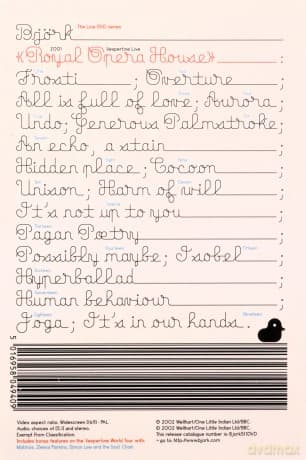 Björk The Live DVD series
2001 Vespertine Live
«Royal Opera House» ;
Frosti ; Overture ;
All is full of love; Aurora;
Undo; Generous Palmstroke;
An echo, a stain ;
Hidden place ; Cocoon ;
Unison ; Harm of will ;
It's not up to you ;
Pagan Pœtry ;
Possibly maybe ; Isobel ;
Hyperballad ;
Human behaviour ;
Joga ; It's in our hands.
5 016958 049409
Video aspect ratio. Widescreen (16:9) - PAL.
Audio: choices of (5.1) and stereo.
Exempt From Classification
Includes bonus features on the Vespertine World Tour with:
Matmos, Zeena Parkins, Simon Lee and the Soul Choir
© 2002 Wellhart/One Little Indian Ltd/BBC
℗ 2002 Wellhart/One Little Indian Ltd/BBC
This release catalogue number is Bjork51DVD
- go to: http://www.bjork.com
avdmax